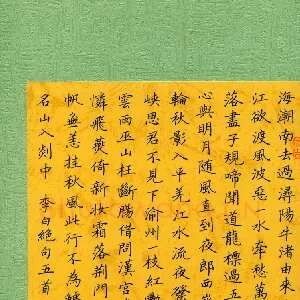 海潮南去過潯陽牛渚由來
江欲渡風波惡一水牽愁萬
落盡子規啼聞道龍標過五
心與明月隨風直到夜郎西
輪秋影入平羌江水流夜發
峽思君不見下渝州一枝紅艷
雲雨巫山枉斷腸借問漢宮
憐飛燕倚新妝霜落荊門
帆無恙挂秋風此行不為鱸
名山入剡中 李白絕句五首